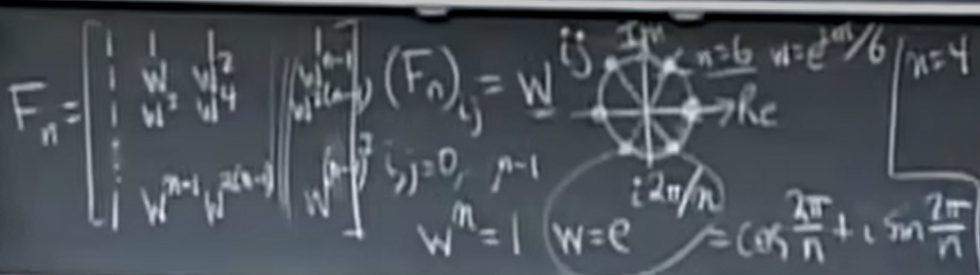 F_n = [ 1 1 1 1
1 w w^2 w^{n-1}
1 w^2 w^4 w^{2(n-1)}
⋮
1 w^{n-1} w^{2(n-1)} w^{(n-1)^2} ]
(F_n)_{ij} = w^{ij}
i,j=0, n-1
w^n = 1
Im
Re
n=6 w=e^{2πi/6}
w=e^{i2π/n} = cos 2π/n + i sin 2π/n
n=4